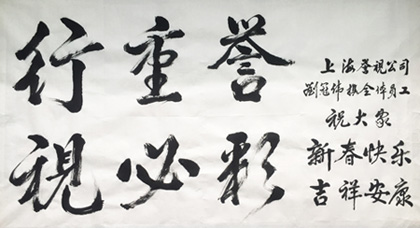 行重誉
視必彩
上海誉視公司
劉冠伟携全体員工
祝大家
新春快乐
吉祥安康